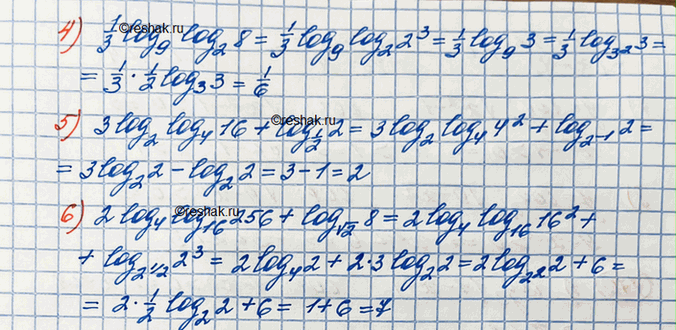 4) 1/3 log₉ log₂ 8 = 1/3 log₉ log₂ 2³ = 1/3 log₉ 3 = 1/3 log₃² 3 =
= 1/3 · 1/2 log₃ 3 = 1/6
5) 3 log₂ log₄ 16 + log_{1/2} 2 = 3 log₂ log₄ 4² + log_{2⁻¹} 2 =
= 3 log₂ 2 − log₂ 2 = 3 − 1 = 2
6) 2 log₄ log₁₆ 256 + log_{√2} 8 = 2 log₄ log₁₆ 16² +
+ log_{2^{1/2}} 2³ = 2 log₄ 2 + 2·3 log₂ 2 = 2 log_{2²} 2 + 6 =
= 2 · 1/2 log₂ 2 + 6 = 1 + 6 = 7
©reshak.ru
©reshak.ru
©reshak.ru